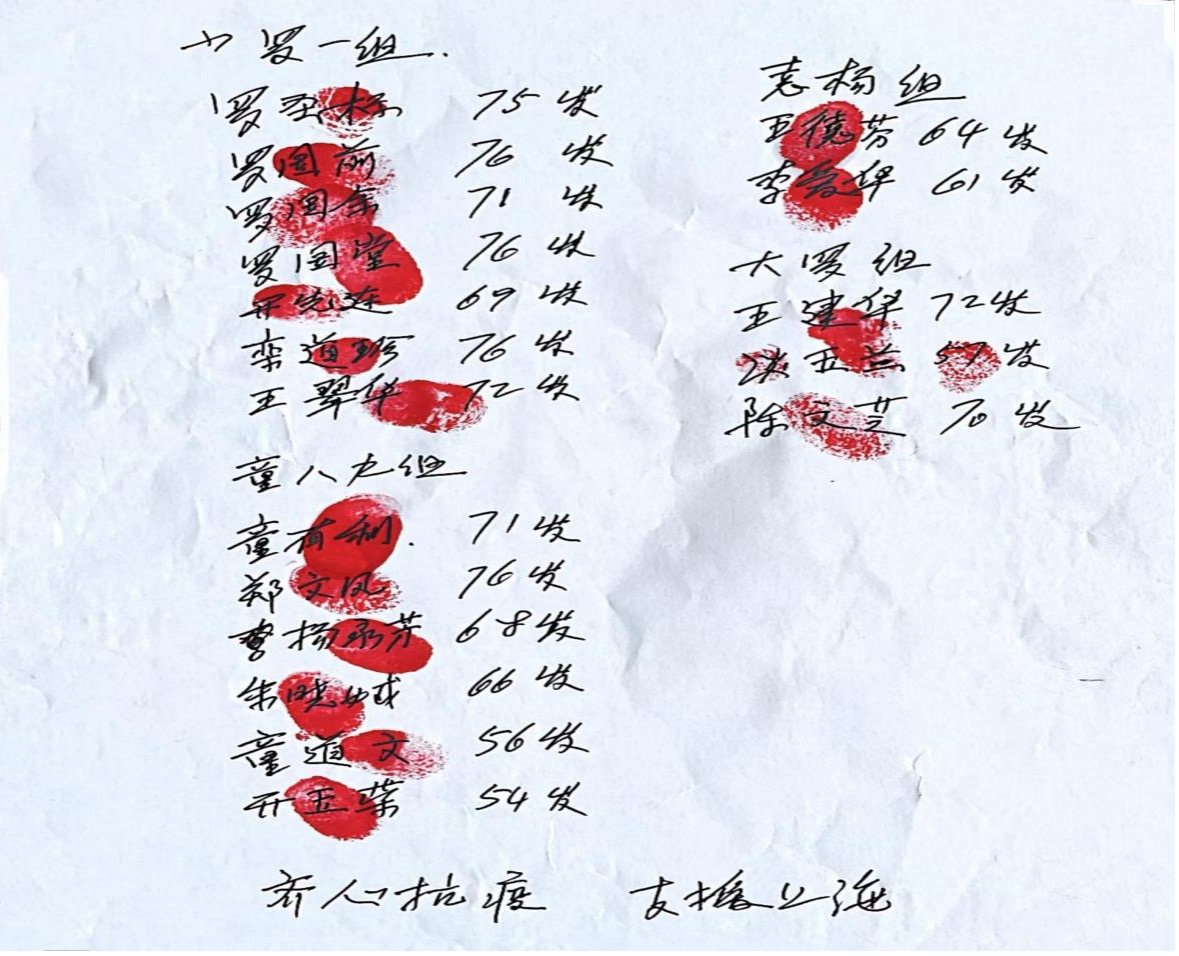 小罗一组.
罗圣杨 75岁
罗国前 76岁
罗国余 71岁
罗国堂 76岁
开先莲 69岁
栾道珍 76岁
王翠华 72岁
童八九组
童有利. 71岁
郑文凤 76岁
杨承芳 68岁
朱晓娥 66岁
童道文 56岁
开玉荣 54岁
志杨组
王德芬 64岁
李爱华 61岁
大罗组
王建华 72岁
洪玉兰 57岁
陈文芝 70岁
齐心抗疫 支援上海